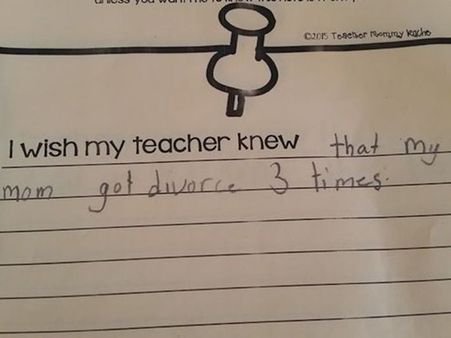 ©2015 Teacher Mommy
I wish my teacher knew that my
mom got divorce 3 times.